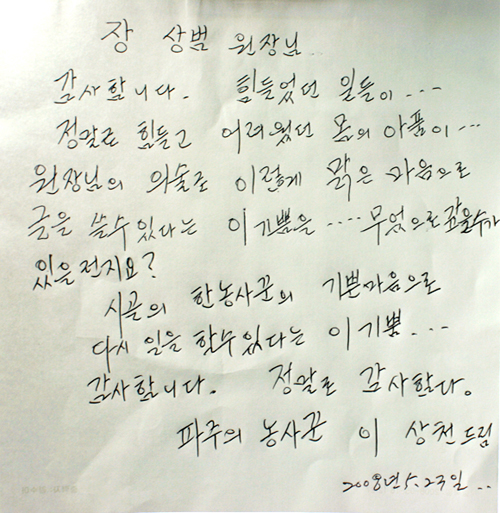 장 상범 원장님..
감사합니다. 힘들었던 일들이...
정말로 힘들고 어려웠던 몸의 아픔이...
원장님의 의술로 이렇게 맑은 마음으로
글을 쓸수있다는 이기쁨을 .... 무엇으로 갚을수가
있을런지요?
시골의 한농사꾼의 기쁜마음으로
다시 일을 할수있다는 이기쁨...
감사합니다. 정말로 감사합다.
파주의 농사꾼 이 상천드림
2008년 5.23일..